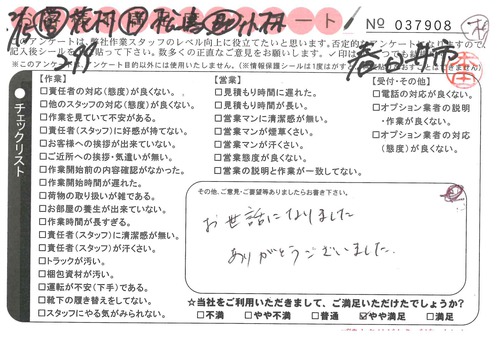 ート
No 037908
2.99
春日井市
アンケートは、弊社作業スタッフのレベル向上に役立てたいと思います。否定的なアンケートになりますので
記入後シールを貼って下さい。数多くの正直なご意見をお待ちしております。
※このアンケートは、アンケート目的以外には使用いたしません。
チェックリスト
【作業】
□責任者の対応(態度)が良くない。
□他のスタッフの対応(態度)が良くない。
□作業を見ていて不安がある。
□責任者(スタッフ)に好感が持てない。
□お客様への挨拶が出来ていない。
□ご近所への挨拶・気遣いが無い。
□作業開始前の内容確認がなかった。
□作業開始時間が遅れた。
□荷物の取り扱いが雑である。
□お部屋の養生が出来ていない。
□作業時間が長すぎる。
□責任者(スタッフ)に清潔感が無い。
□責任者(スタッフ)が汗くさい。
□トラックが汚い。
□梱包資材が汚い。
□運転が不安(下手)である。
□靴下の履き替えをしてない。
□スタッフにやる気がみられない。
【営業】
□見積もり時間に遅れた。
□見積もり時間が長い。
□営業マンに清潔感が無い。
□営業マンが煙草くさい。
□営業マンが汗くさい。
□営業態度が良くない。
□営業の説明と作業が一致してない。
【受付・その他】
□電話の対応が良くない。
□オプション業者の説明
・作業が良くない。
□オプション業者の対応
(態度)が良くない。
その他、ご意見・ご要望等ありましたらお書き下さい。
お世話になりました
ありがとうございました。
☆当社をご利用いただきまして、ご満足いただけたでしょうか?
□不満 □やや不満 □普通 ☑やや満足 □満足